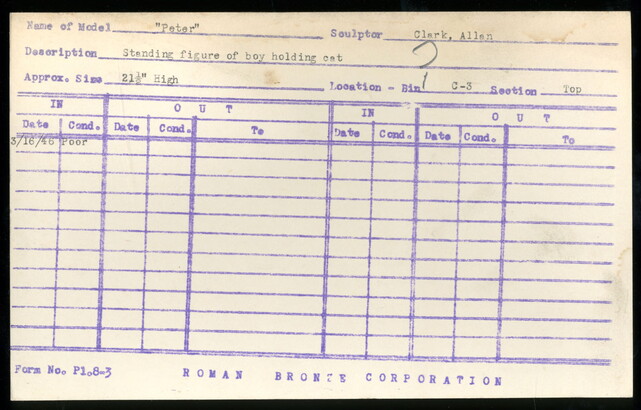 Name of Model "Peter" Sculptor Clark, Allan
Description Standing figure of boy holding cat
Approx. Size 21½" High Location - Bin C-3 Section Top
IN OUT IN OUT
Date Cond. Date Cond. To Date Cond. Date Cond. To
3/16/46 Poor
Form No. P1.8-3 ROMAN BRONZE CORPORATION